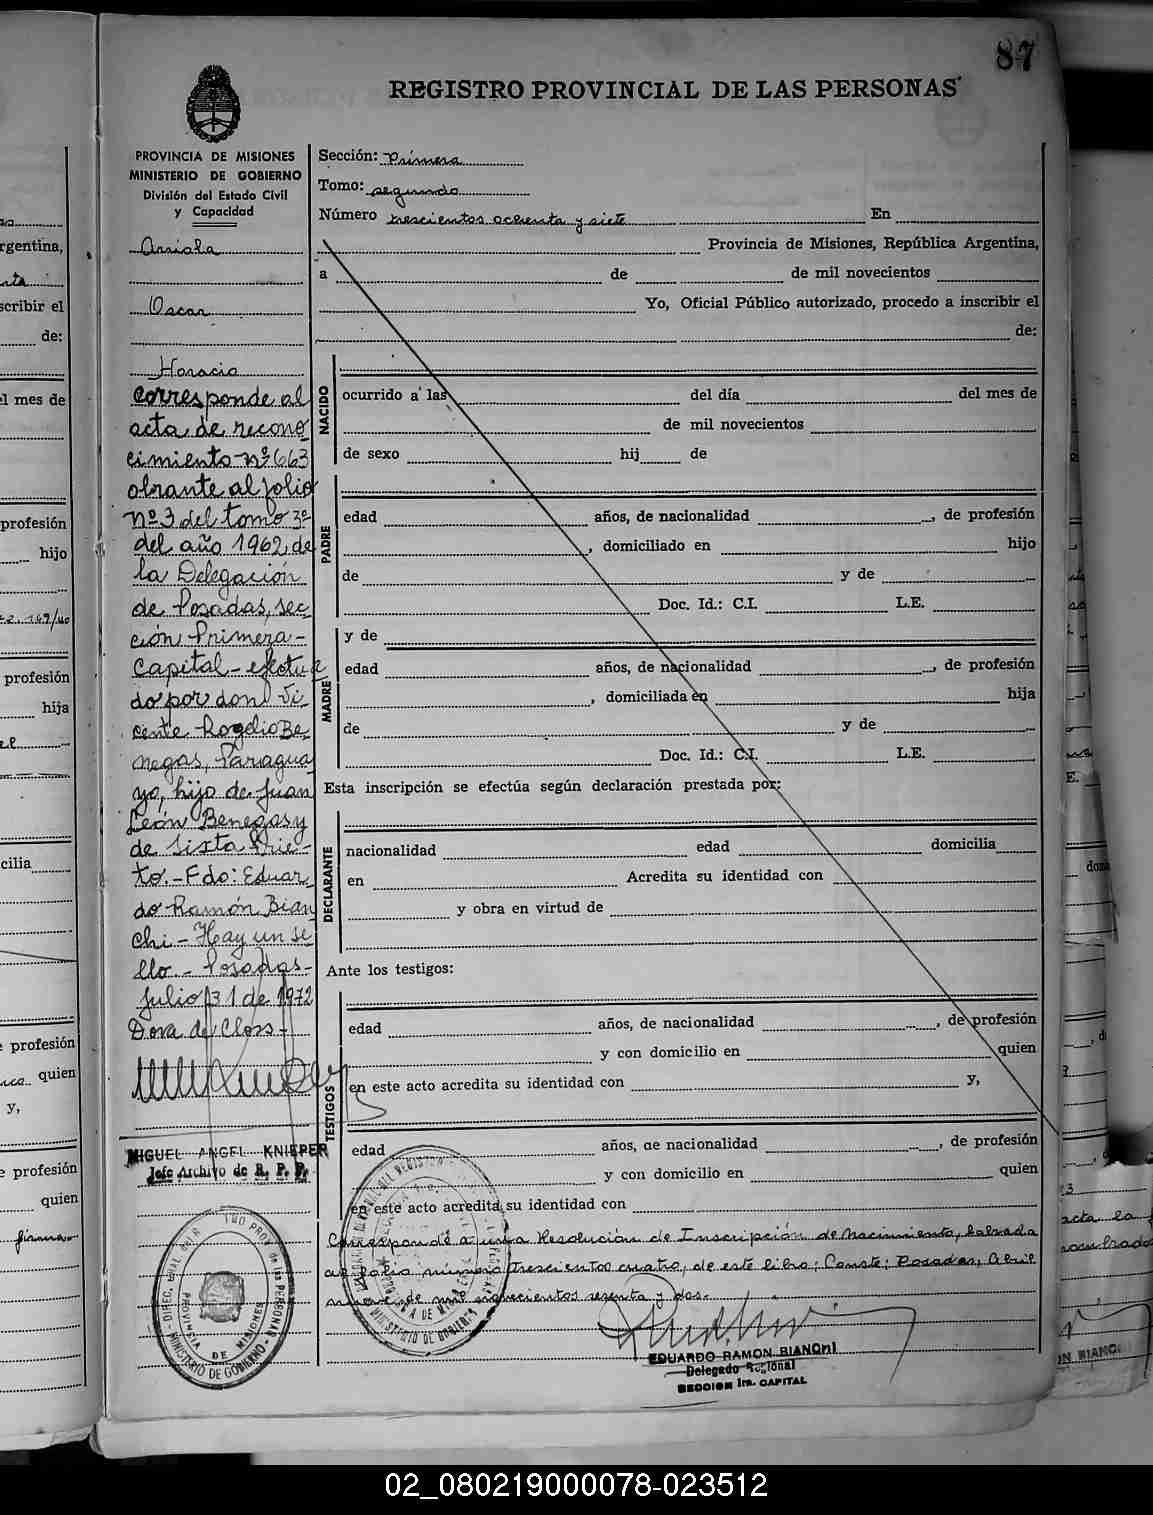 87
REGISTRO PROVINCIAL DE LAS PERSONAS
PROVINCIA DE MISIONES
MINISTERIO DE GOBIERNO
División del Estado Civil
y Capacidad
Arriola
Oscar
Horacio
Corresponde al
acta de recono
cimiento nº 663
obrante al folio
Nº 3 del tomo 3º
del año 1962, de
la Delegación
de Posadas, sec
ción Primera-
Capital - efectua
do por don Vi
cente Rogelio Be
negas, Paragua
yo, hijo de Juan
León Benegas y
de Sixta Prie-
to. - Fdo: Eduar
do Ramón Bian
chi - Hay un se
llo. - Posadas-
Julio 31 de 1972
Dora de Closs-
MIGUEL ANGEL KNIEPER
Jefe Archivo de R. P. P.
PROVINCIA DE MISIONES
MINISTERIO DE GOBIERNO
Sección: Primera
Tomo: segundo
Número trescientos ochenta y siete En
Provincia de Misiones, República Argentina,
a de de mil novecientos
Yo, Oficial Público autorizado, procedo a inscribir el
de:
NACIDO
ocurrido a las del día del mes de
de mil novecientos
de sexo hij de
PADRE
edad años, de nacionalidad , de profesión
, domiciliado en hijo
de y de
Doc. Id.: C.I. L.E.
MADRE
y de
edad años, de nacionalidad , de profesión
, domiciliada en hija
de y de
Doc. Id.: C.I. L.E.
Esta inscripción se efectúa según declaración prestada por:
DECLARANTE
nacionalidad edad domicilia
en Acredita su identidad con
y obra en virtud de
Ante los testigos:
TESTIGOS
edad años, de nacionalidad , de profesión
y con domicilio en quien
en este acto acredita su identidad con y,
edad años, de nacionalidad , de profesión
y con domicilio en quien
en este acto acredita su identidad con
Corresponde a una Resolución de Inscripción de Nacimiento, labrada
al folio número trescientos cuatro, de este libro; Conste; Posadas, Abril
nueve de mil novecientos sesenta y dos.-
EDUARDO RAMON BIANCHI
Delegado Regional
SECCION 1ra. CAPITAL
rgentina,
scribir el
de:
el mes de
profesión
hijo
profesión
hija
cilia
profesión
quien
y,
e profesión
quien
firma
02_080219000078-023512